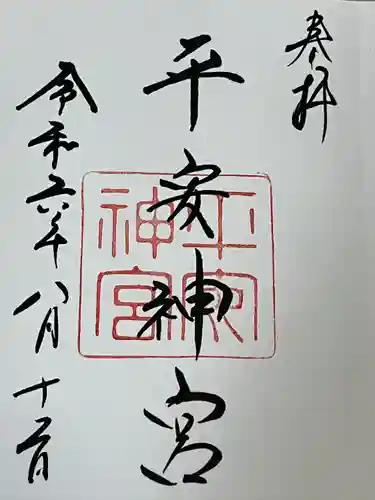 奉拝
平安神宮
平安神宮
令和六年八月十二日